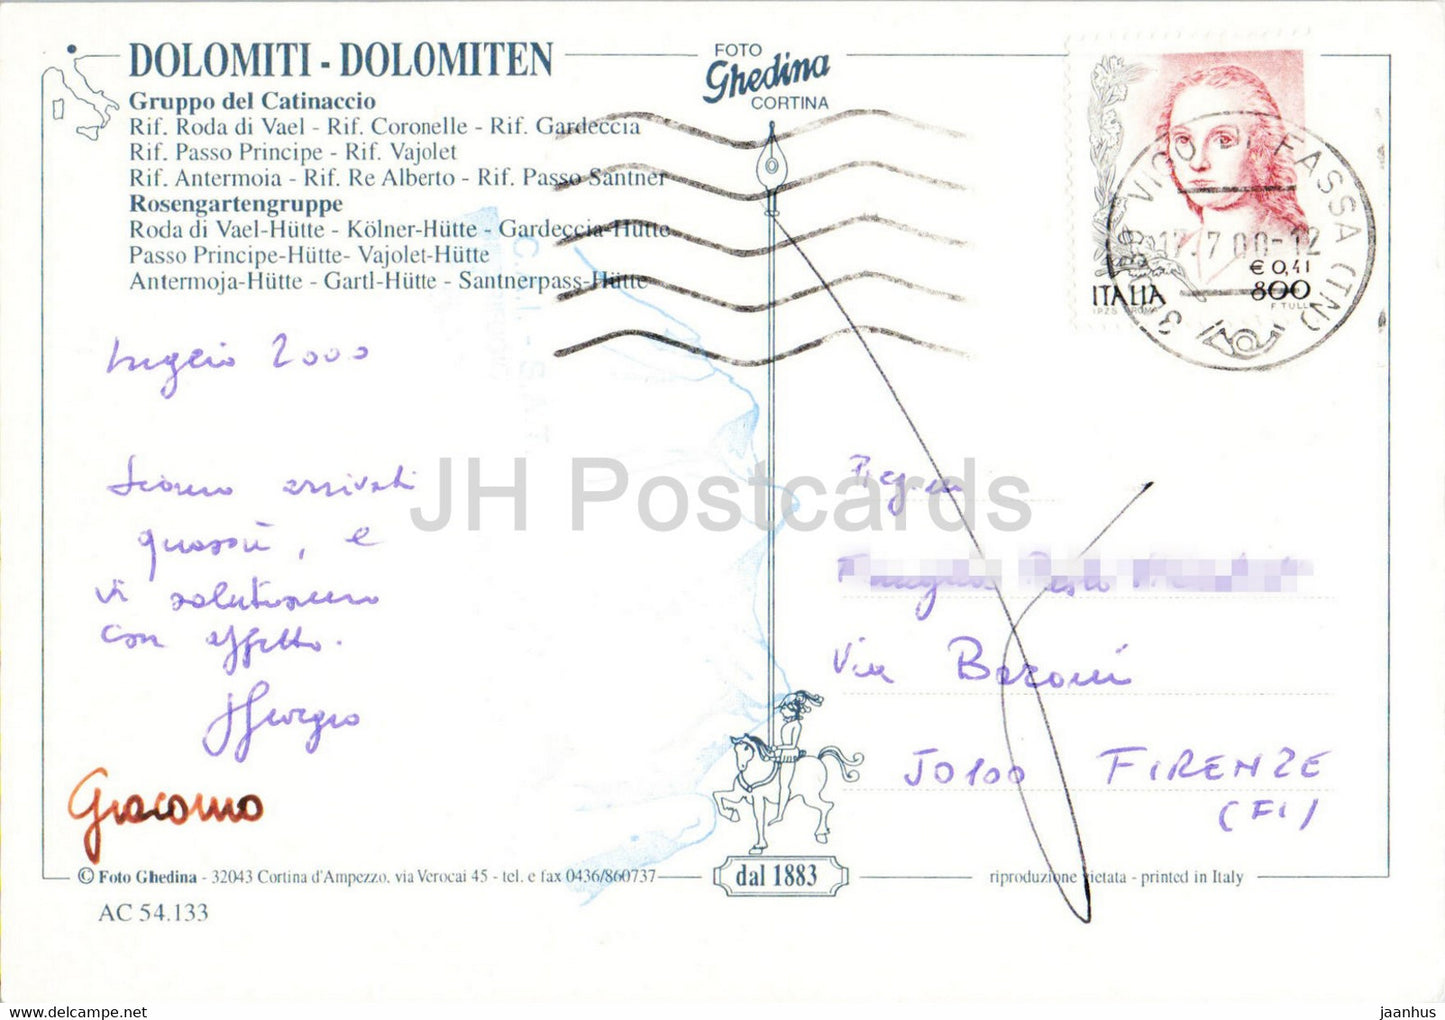 DOLOMITI - DOLOMITEN
Gruppo del Catinaccio
Rif. Roda di Vael - Rif. Coronelle - Rif. Gardeccia
Rif. Passo Principe - Rif. Vajolet
Rif. Antermoia - Rif. Re Alberto - Rif. Passo Santner
Rosengartengruppe
Roda di Vael-Hütte - Kölner-Hütte - Gardeccia-Hütte
Passo Principe-Hütte- Vajolet-Hütte
Antermoja-Hütte - Gartl-Hütte - Santnerpass-Hütte
FOTO
Ghedina
CORTINA
38039 VIGO DI FASSA (TN)
17.7.00-12
€ 0,41
800
ITALIA
F. TULLI
I.P.Z.S. ROMA
luglio 2000
Siamo arrivati
quassù, e
vi salutiamo
con affetto.
Giorgio
Giacomo
JH Postcards
Via Baroni
50100 FIRENZE
(FI)
© Foto Ghedina - 32043 Cortina d'Ampezzo, via Verocai 45 - tel. e fax 0436/860737
dal 1883
riproduzione vietata - printed in Italy
AC 54.133
www.delcampe.net
jaanhus